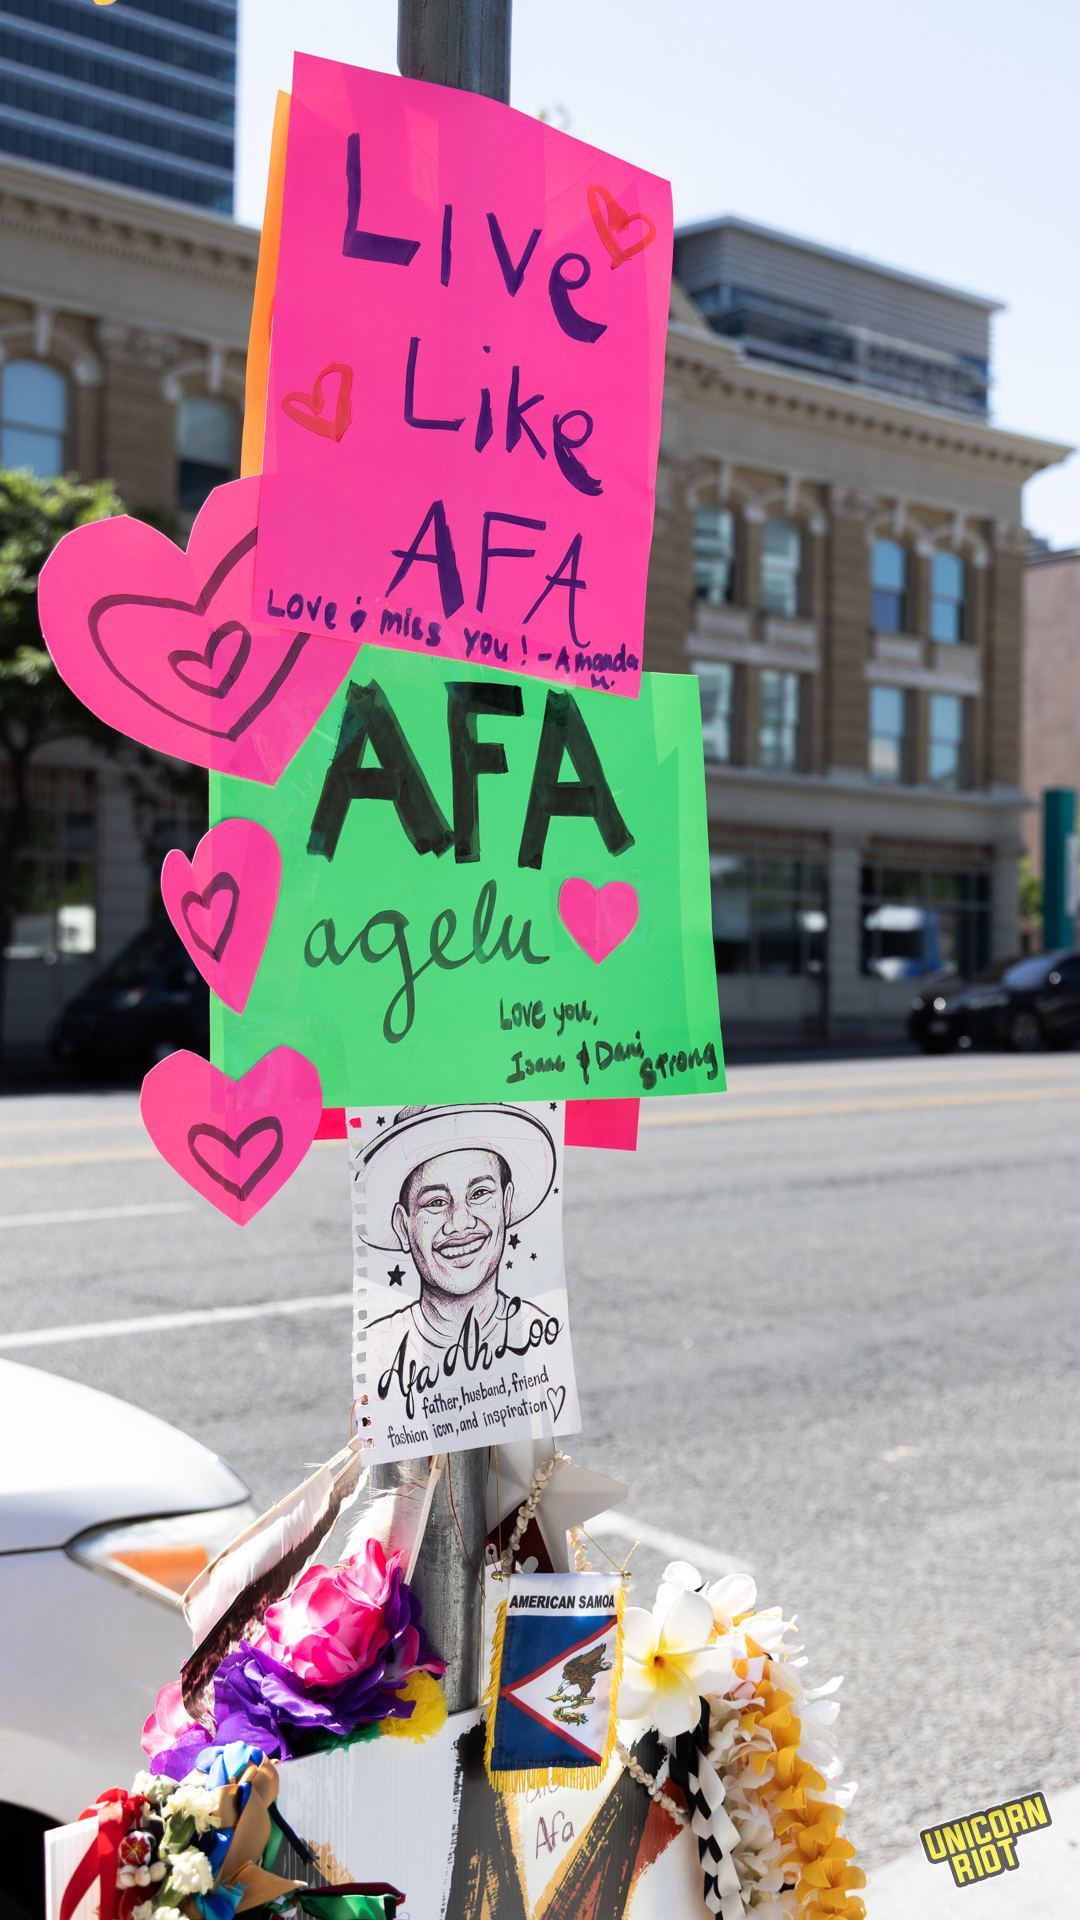 Live
Like
AFA
Love & miss you! -Amanda
AFA
agelu
Love you,
Isaac & Dani
Strong
Afa Ah Loo
father, husband, friend
fashion icon, and inspiration
AMERICAN SAMOA
Afa
UNICORN
RIOT